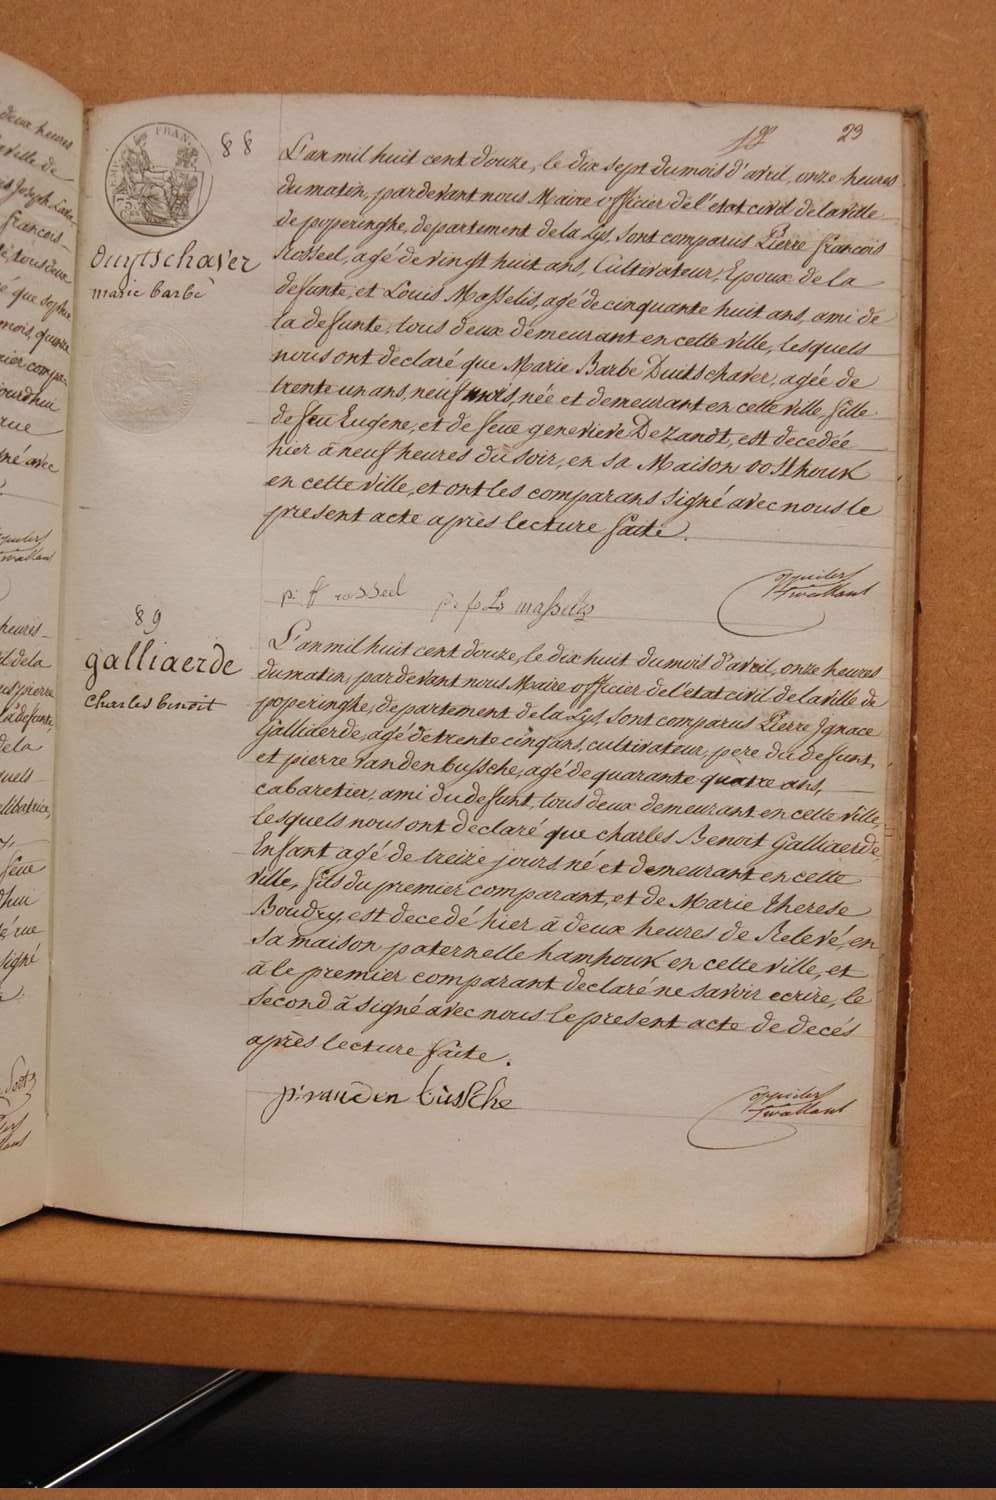 23
88
Duytschaver
marie barbe
L'an mil huit cent douze, le dix sept du mois d'avril, onze heures
du matin, pardevant nous Maire officier de l'etat civil de la ville
de poperinghe, departement de la Lys, sont comparus Pierre françois
Rosseel, agé de vingt huit ans, Cultivateur, Epoux de la
defunte, et Louis Masselis, agé de cinquante huit ans, ami de
la defunte, tous deux demeurant en cette ville, lesquels
nous ont declaré que Marie Barbe Duitschaver, agée de
trente un ans, neuf mois, née et demeurant en cette ville, fille
de feu Eugene, et de feüe genevieve Dezandt, est decedée
hier à neuf heures du soir, en sa Maison oosthouk
en cette ville, et ont les comparans signé avec nous le
present acte après lecture faite.
p: ff rosseel
Ls masselis
89
galliaerde
charles benoit
L'an mil huit cent douze, le dix huit du mois d'avril, onze heures
du matin, pardevant nous Maire officier de l'etat civil de la ville de
poperinghe, departement de la Lys, sont comparus Pierre Ignace
Galliaerde, agé de trente cinq ans, cultivateur, pere du defunt,
et pierre vandenbussche, agé de quarante quatre ans,
cabaretier, ami du defunt, tous deux demeurant en cette ville,
lesquels nous ont declaré que charles Benoit Galliaerde,
Enfant agé de treize jours, né et demeurant en cette
ville, fils du premier comparant, et de Marie Therese
Boudry, est decedé hier à deux heures de Relevé, en
sa maison paternelle hamhouk en cette ville, et
à le premier comparant declaré ne savoir ecrire, le
second à signé avec nous le present acte de decés
après lecture faite.
p: vanden büssche